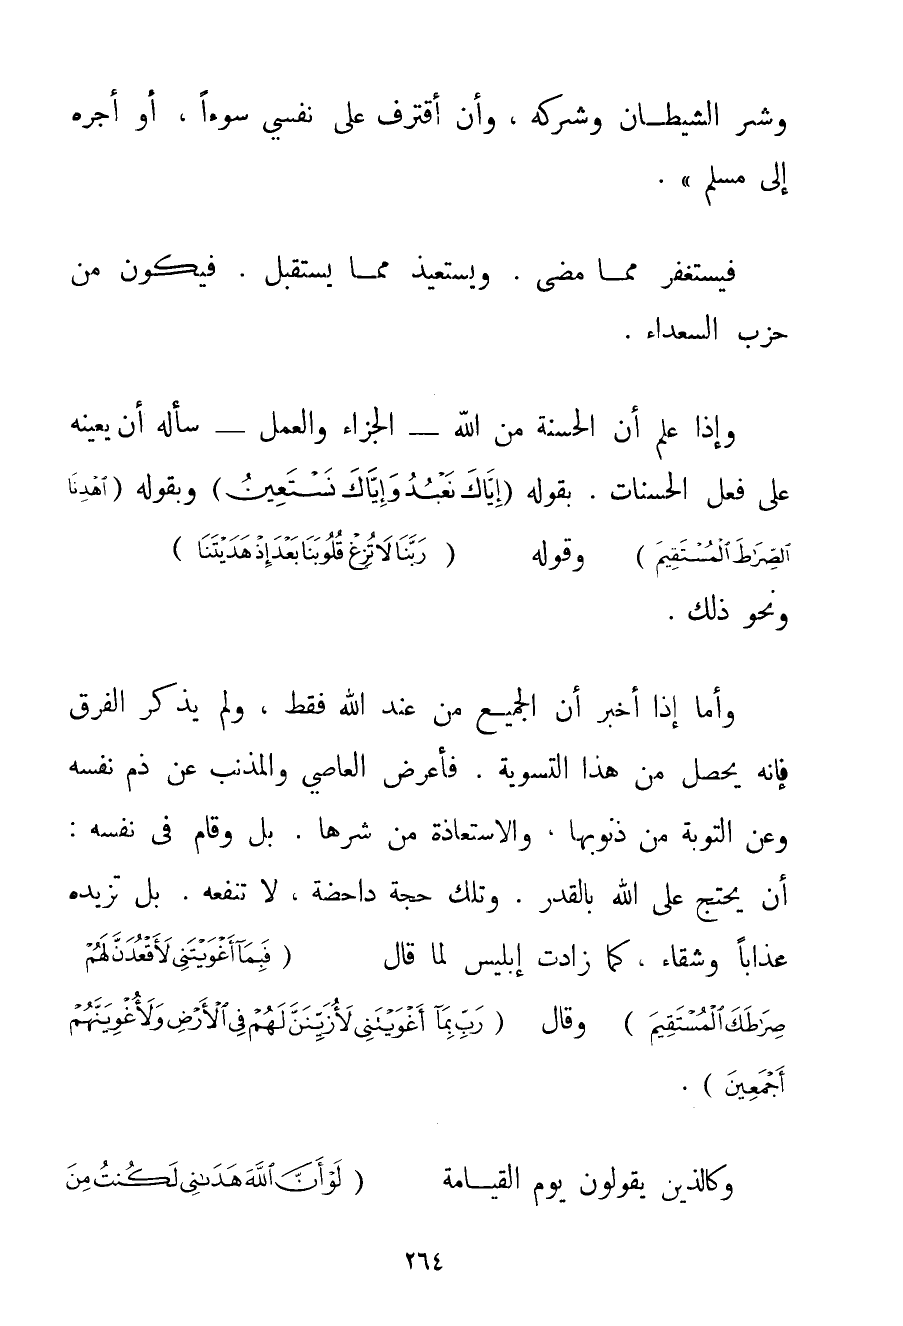 وشر الشيطــان وشركه ، وأن أقترف على نفسي سوءاً ، أو أجره
إلى مسلم » .
فيستغفر ممــا مضى . ويستعيذ ممــا يستقبل . فيكون من
حزب السعداء .
وإذا علم أن الحسنة من الله ــ الجزاء والعمل ــ سأله أن يعينه
على فعل الحسنات . بقوله (إِيَّاكَ نَعْبُدُ وَإِيَّاكَ نَسْتَعِينُ) وبقوله (ٱهْدِنَا
ٱلصِّرَٰطَ ٱلْمُسْتَقِيمَ ) وقوله ( رَبَّنَا لَا تُزِغْ قُلُوبَنَا بَعْدَ إِذْ هَدَيْتَنَا )
ونحو ذلك .
وأما إذا أخبر أن الجميــع من عند الله فقط ، ولم يذكر الفرق
فإنه يحصل من هذا التسوية . فأعرض العاصي والمذنب عن ذم نفسه
وعن التوبة من ذنوبها ، والاستعاذة من شرها . بل وقام فى نفسه :
أن يحتج على الله بالقدر . وتلك حجة داحضة ، لا تنفعه . بل تزيده
عذاباً وشقاء ، كما زادت إبليس لما قال ( فَبِمَآ أَغْوَيْتَنِى لَأَقْعُدَنَّ لَهُمْ
صِرَٰطَكَ ٱلْمُسْتَقِيمَ ) وقال ( رَبِّ بِمَآ أَغْوَيْتَنِى لَأُزَيِّنَنَّ لَهُمْ فِى ٱلْأَرْضِ وَلَأُغْوِيَنَّهُمْ
أَجْمَعِينَ ) .
وكالذين يقولون يوم القيــامة ( لَوْ أَنَّ ٱللَّهَ هَدَىٰنِى لَكُنتُ مِنَ
٢٦٤